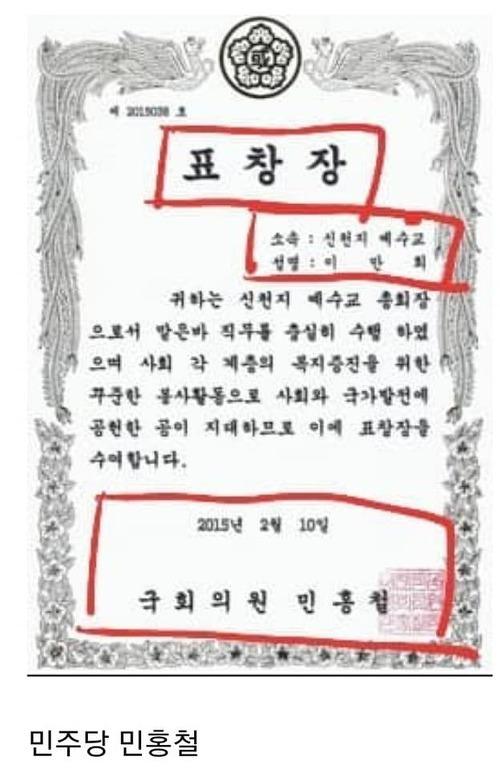 國
제 2015038 호
표 창 장
소속 : 신천지 예수교
성명 : 이 만 희
귀하는 신천지 예수교 총회장
으로서 맡은바 직무를 충실히 수행 하였
으며 사회 각 계층의 복지증진을 위한
꾸준한 봉사활동으로 사회와 국가발전에
공헌한 공이 지대하므로 이에 표창장을
수여합니다.
2015년 2월 10일
국 회 의 원 민 홍 철
민주당 민홍철